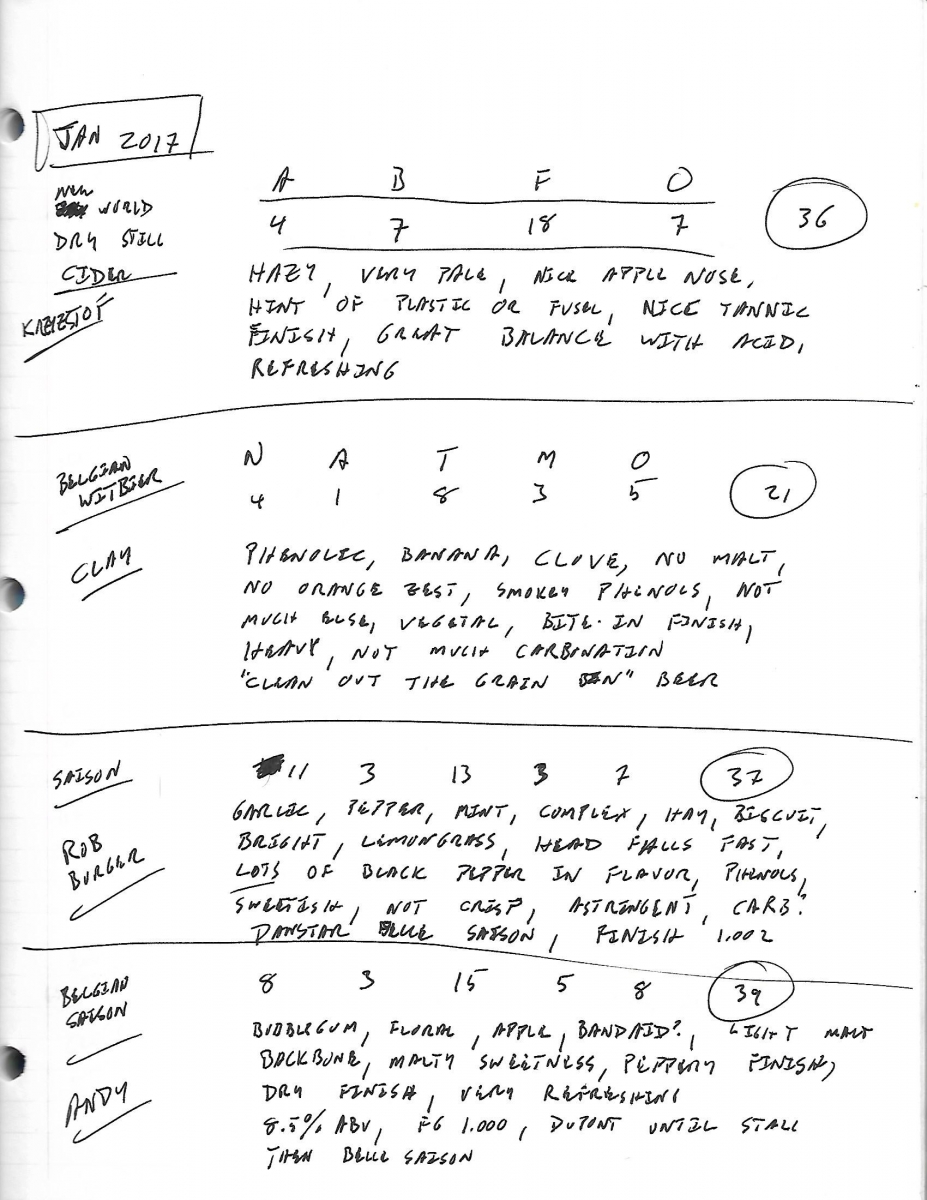 JAN 2017
A B F O
NEW
WORLD
4 7 18 7 36
DRY STILL
CIDER
HAZY, VERY PALE, NICE APPLE NOSE,
HINT OF PLASTIC OR FUSEL, NICE TANNIC
FINISH, GREAT BALANCE WITH ACID,
REFRESHING
N A T M O
BELGIAN
WITBIER
4 1 8 3 5 21
CLAY
PHENOLIC, BANANA, CLOVE, NO MALT,
NO ORANGE ZEST, SMOKEY PHENOLS, NOT
MUCH ELSE, VEGETAL, BITE IN FINISH,
HEAVY, NOT MUCH CARBONATION
"CLEAN OUT THE GRAIN BIN" BEER
SAISON
11 3 13 3 7 37
ROB
BURGER
GARLIC, PEPPER, MINT, COMPLEX, HAY, BISCUIT,
BRIGHT, LEMONGRASS, HEAD FALLS FAST,
LOTS OF BLACK PEPPER IN FLAVOR, PHENOLS,
SWEETISH, NOT CRISP, ASTRINGENT, CARB?
DANSTAR BELLE SAISON, FINISH 1.002
BELGIAN
SAISON
8 3 15 5 8 39
ANDY
BUBBLEGUM, FLORAL, APPLE, BANDAID?, LIGHT MALT
BACKBONE, MALTY SWEETNESS, PEPPERY FINISH,
DRY FINISH, VERY REFRESHING
8.5% ABV, FG 1.000, DUPONT UNTIL STALL
THEN BELLE SAISON